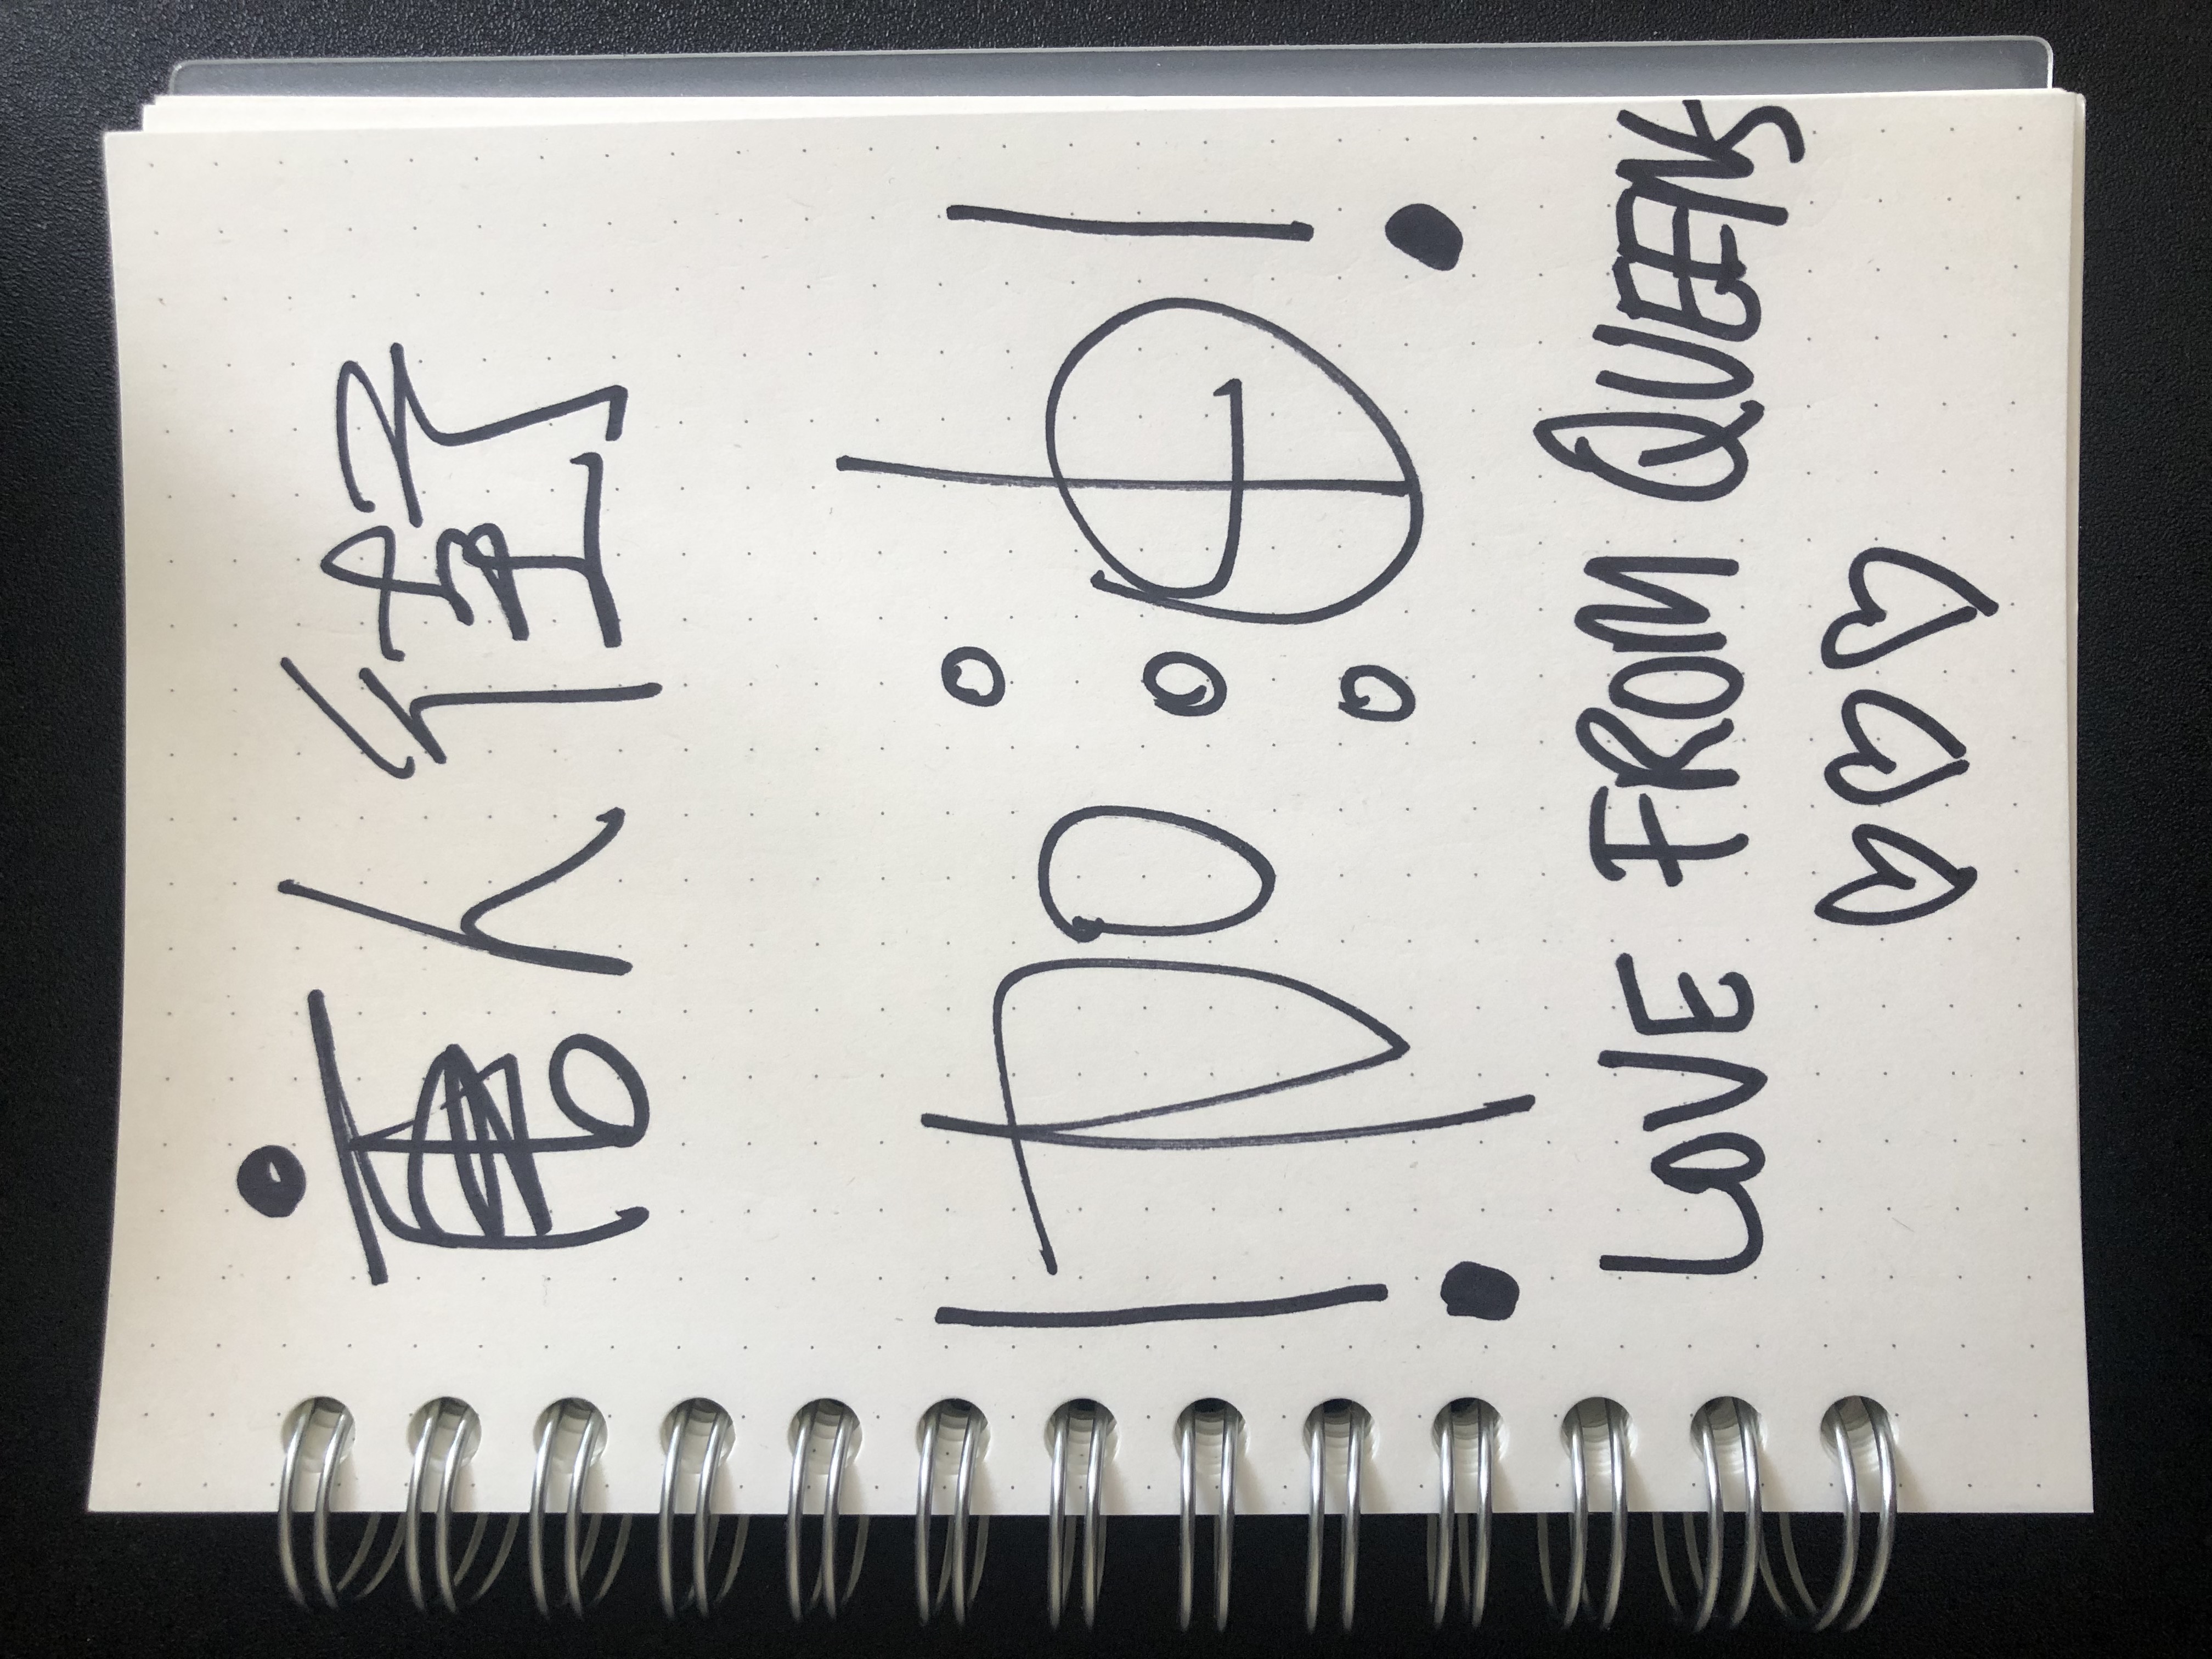 唐人街
!加油!
LOVE FROM QUEENS
♡♡♡